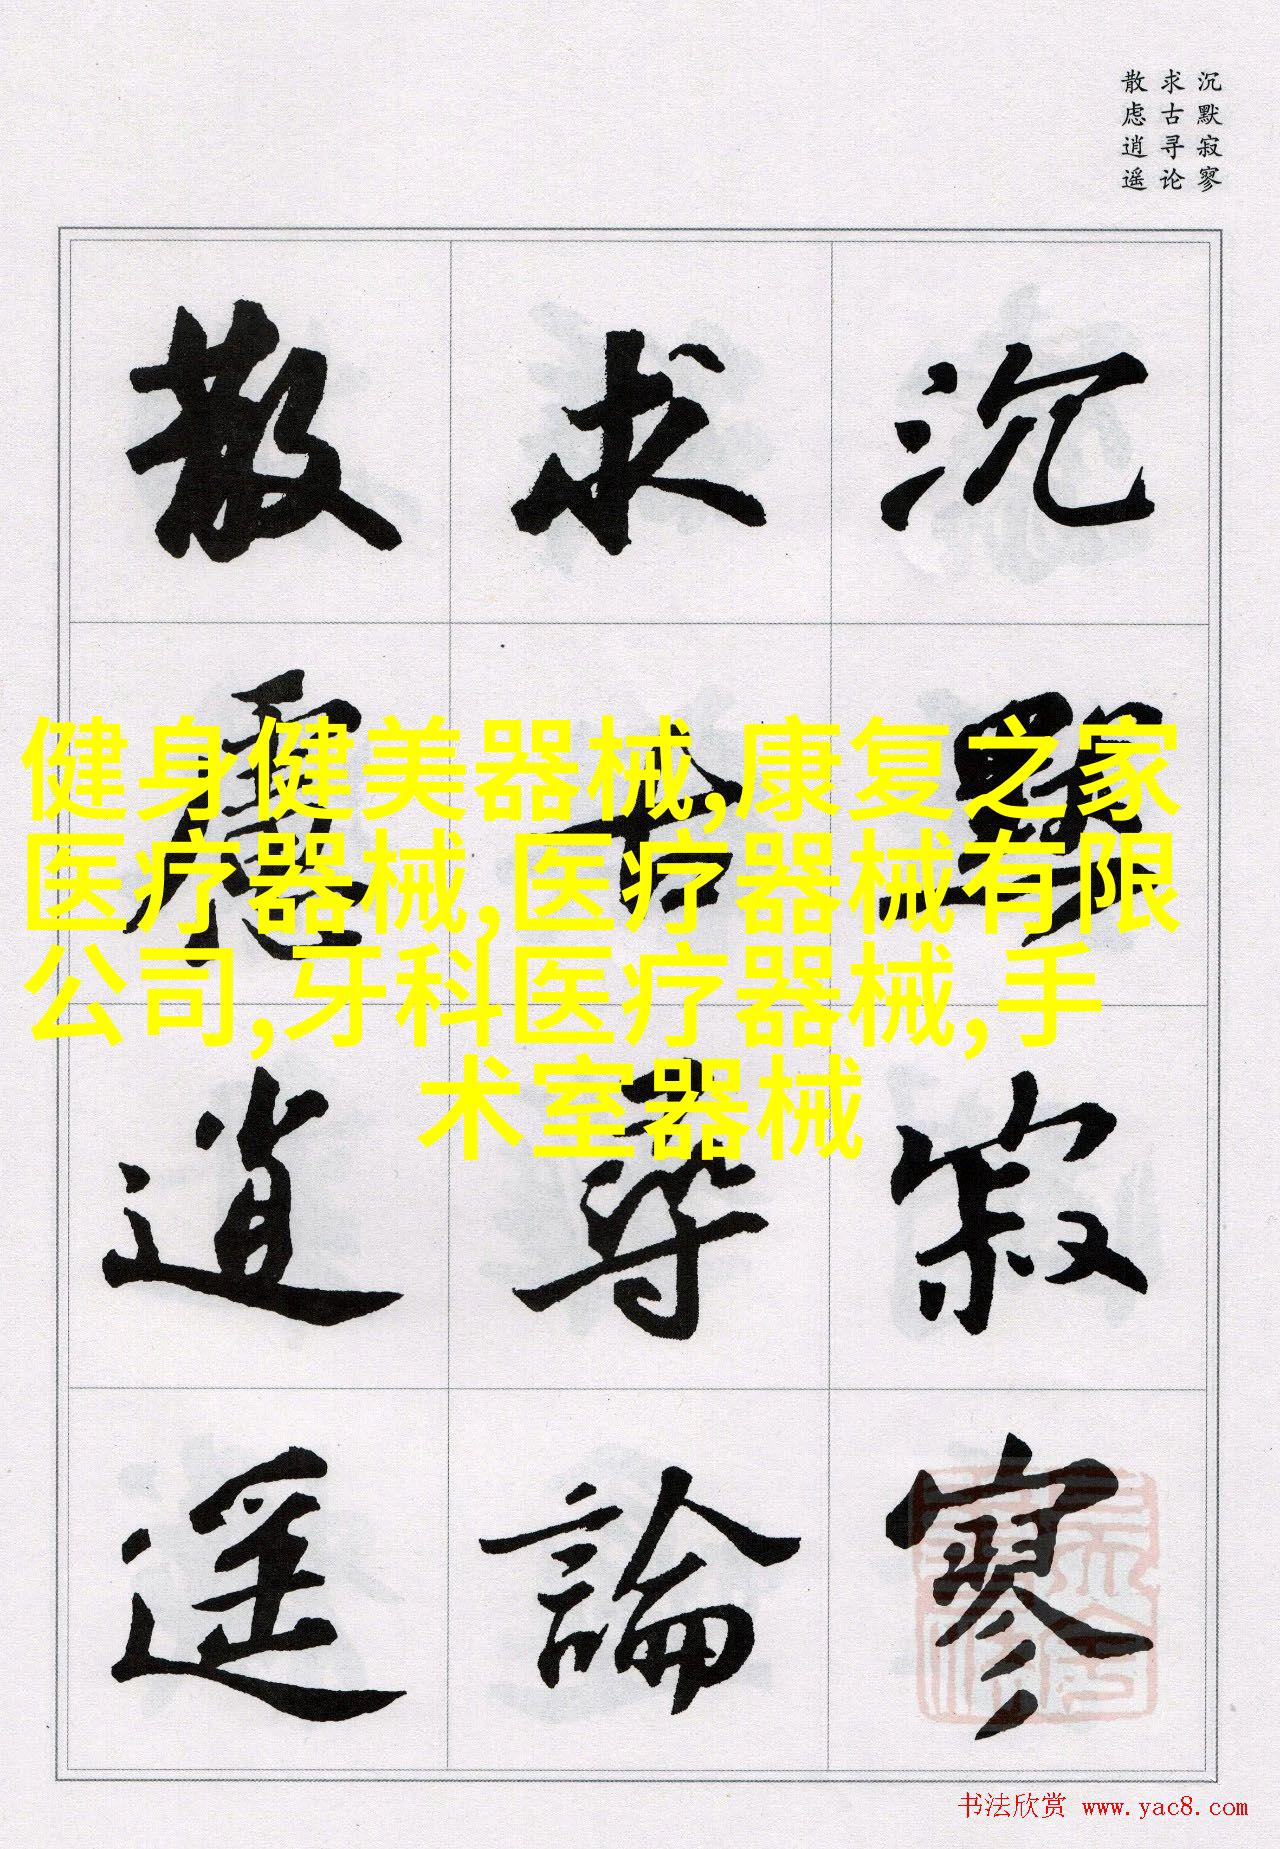 沉默寂寥
求古寻论
散虑逍遥
沉默寂寥
求古尋論
散慮逍遥
健身健美器械,康复之家
医疗器械,医疗器械有限
公司,牙科医疗器械,手
术室器械
书法欣赏 www.yac8.com